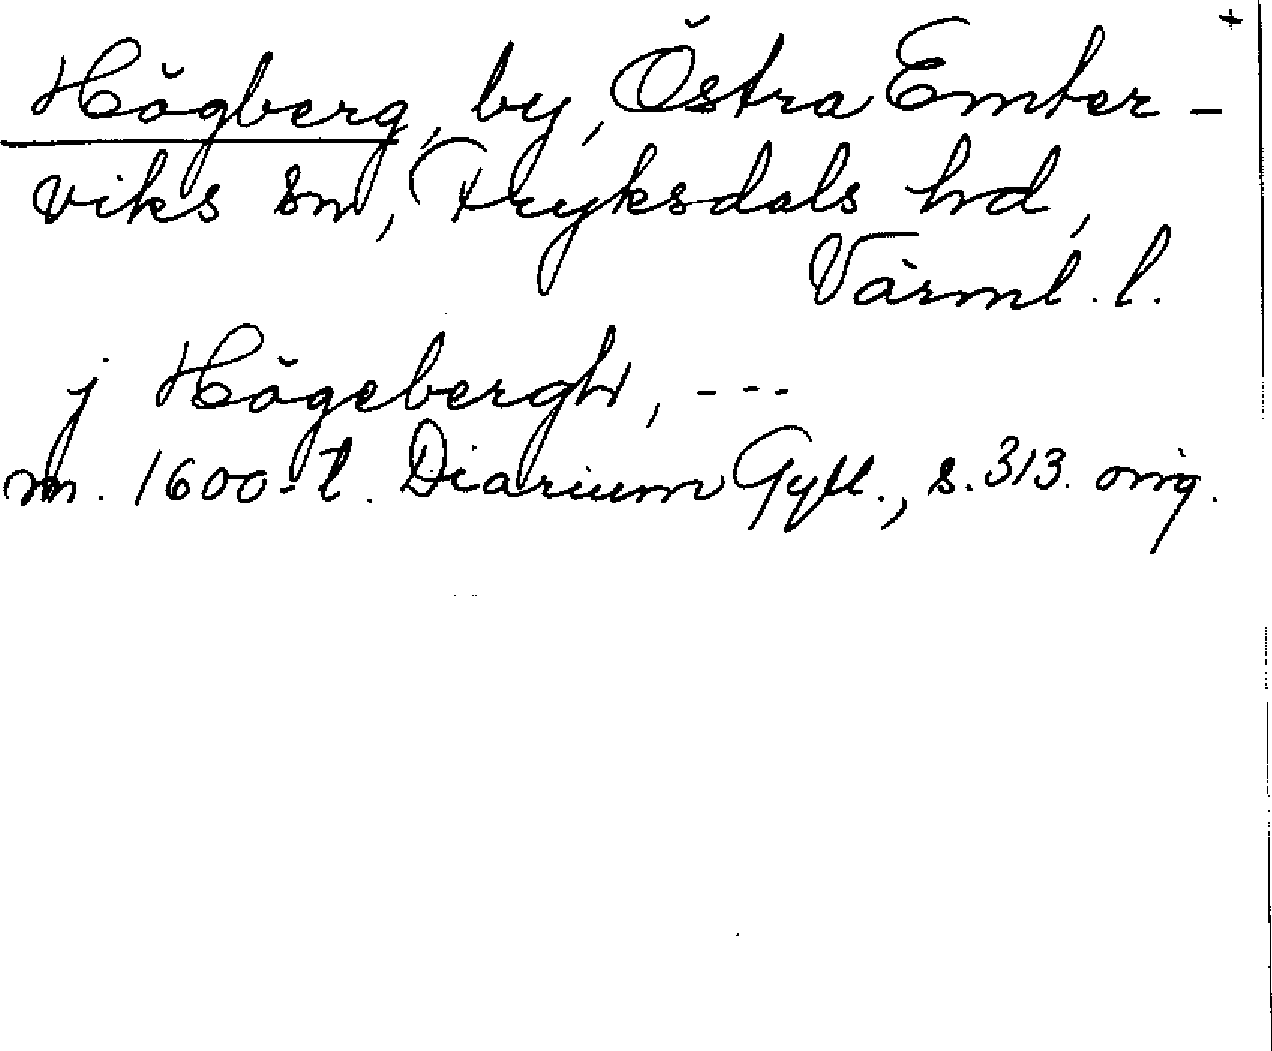 Högberg, by, Östra Emter- +
viks sn, Fryksdals hd,
Värml. l.
j Högebergh, ---
m. 1600-t. Diarium Gyll., s. 313. orig.